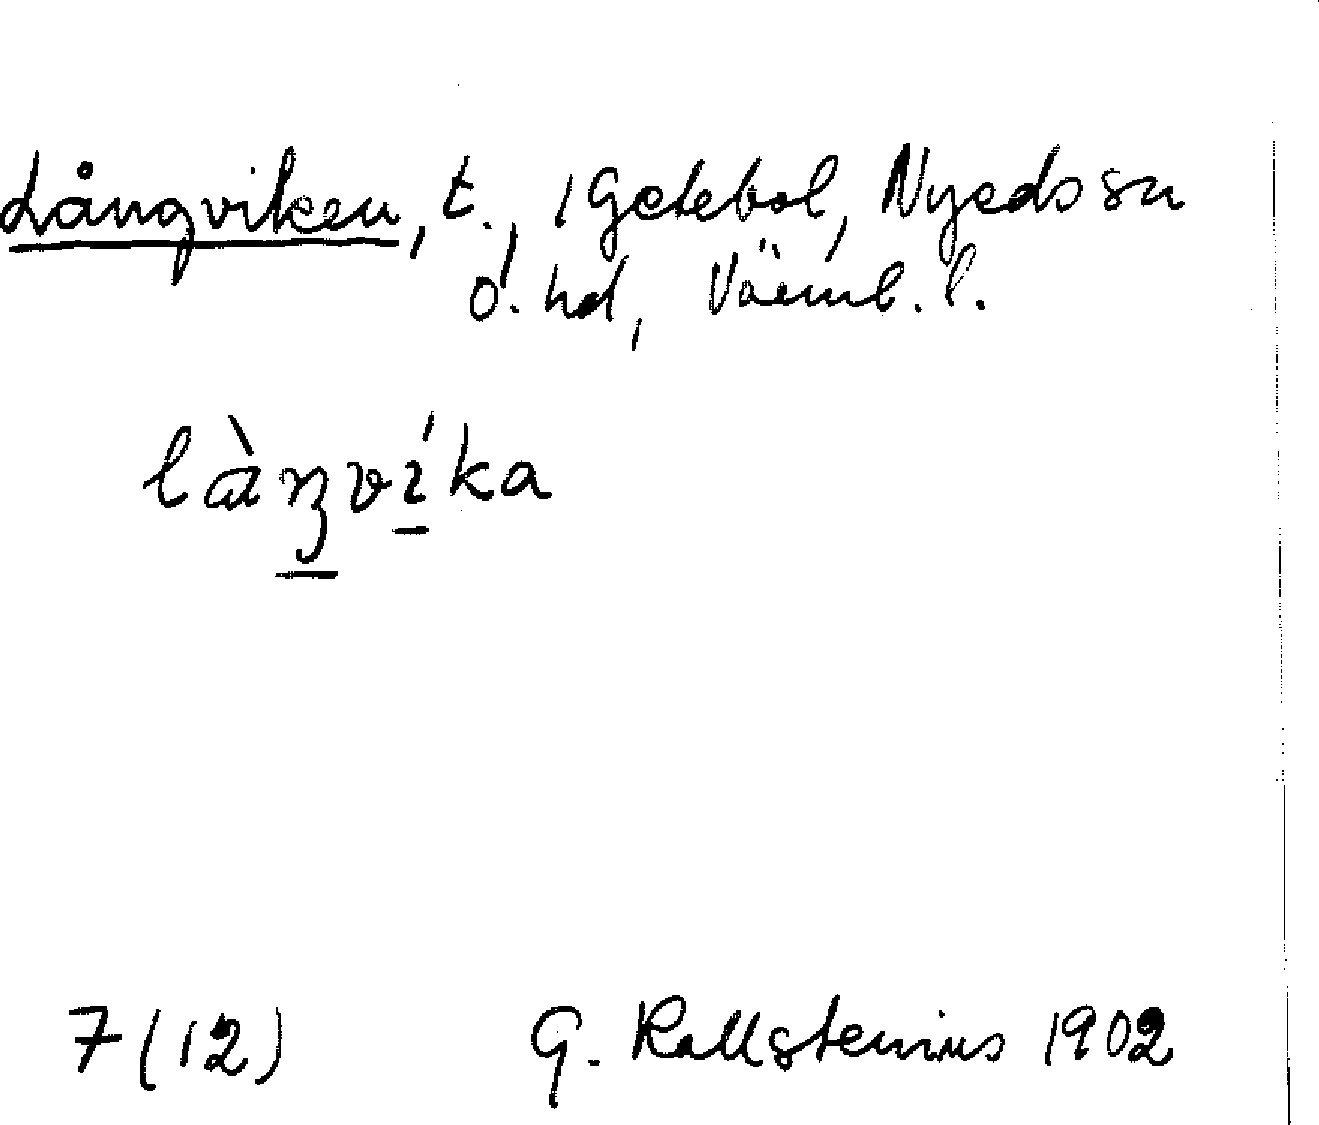 Långviken, t., i Getebol, Nyeds sn
Ö. hd, Värml. l.
làŋvíka
7 (12) G. Kallstenius 1902